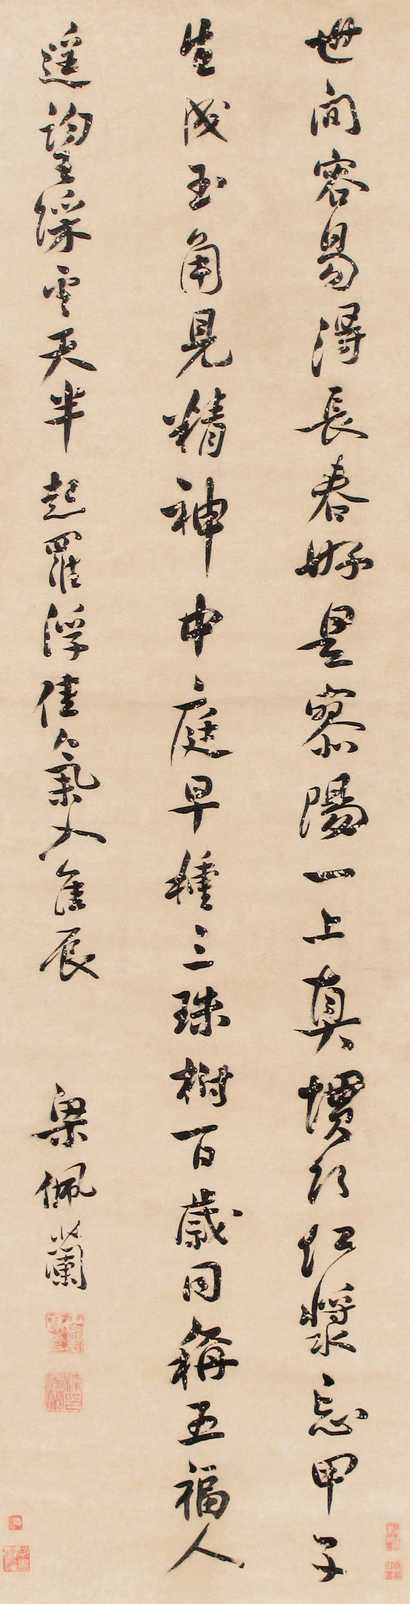 世間容易得長春好是寥陽一上真慣紅漿忘甲子
生成玉角見精神中庭早種三珠樹百歲同稱五福人
遥望綵雲天半起羅浮佳氣入佳辰
梁佩蘭